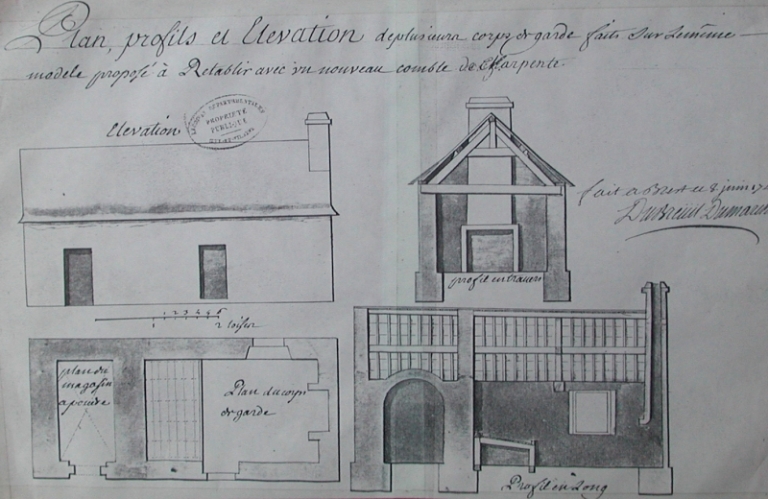 Plan, profils et Elevation de plusieurs corps de garde faits sur le même
modele proposé à Retablir avec un nouveau comble de Charpente.
Elevation
PROPRIÉTÉ
PUBLIQUE
fait a Brest ce 8 juin 17
profil en travers
1 2 3 4 5 6
1 2 toises
plan du
magasin
a poudre
Plan du corps
de garde
Profil en Long